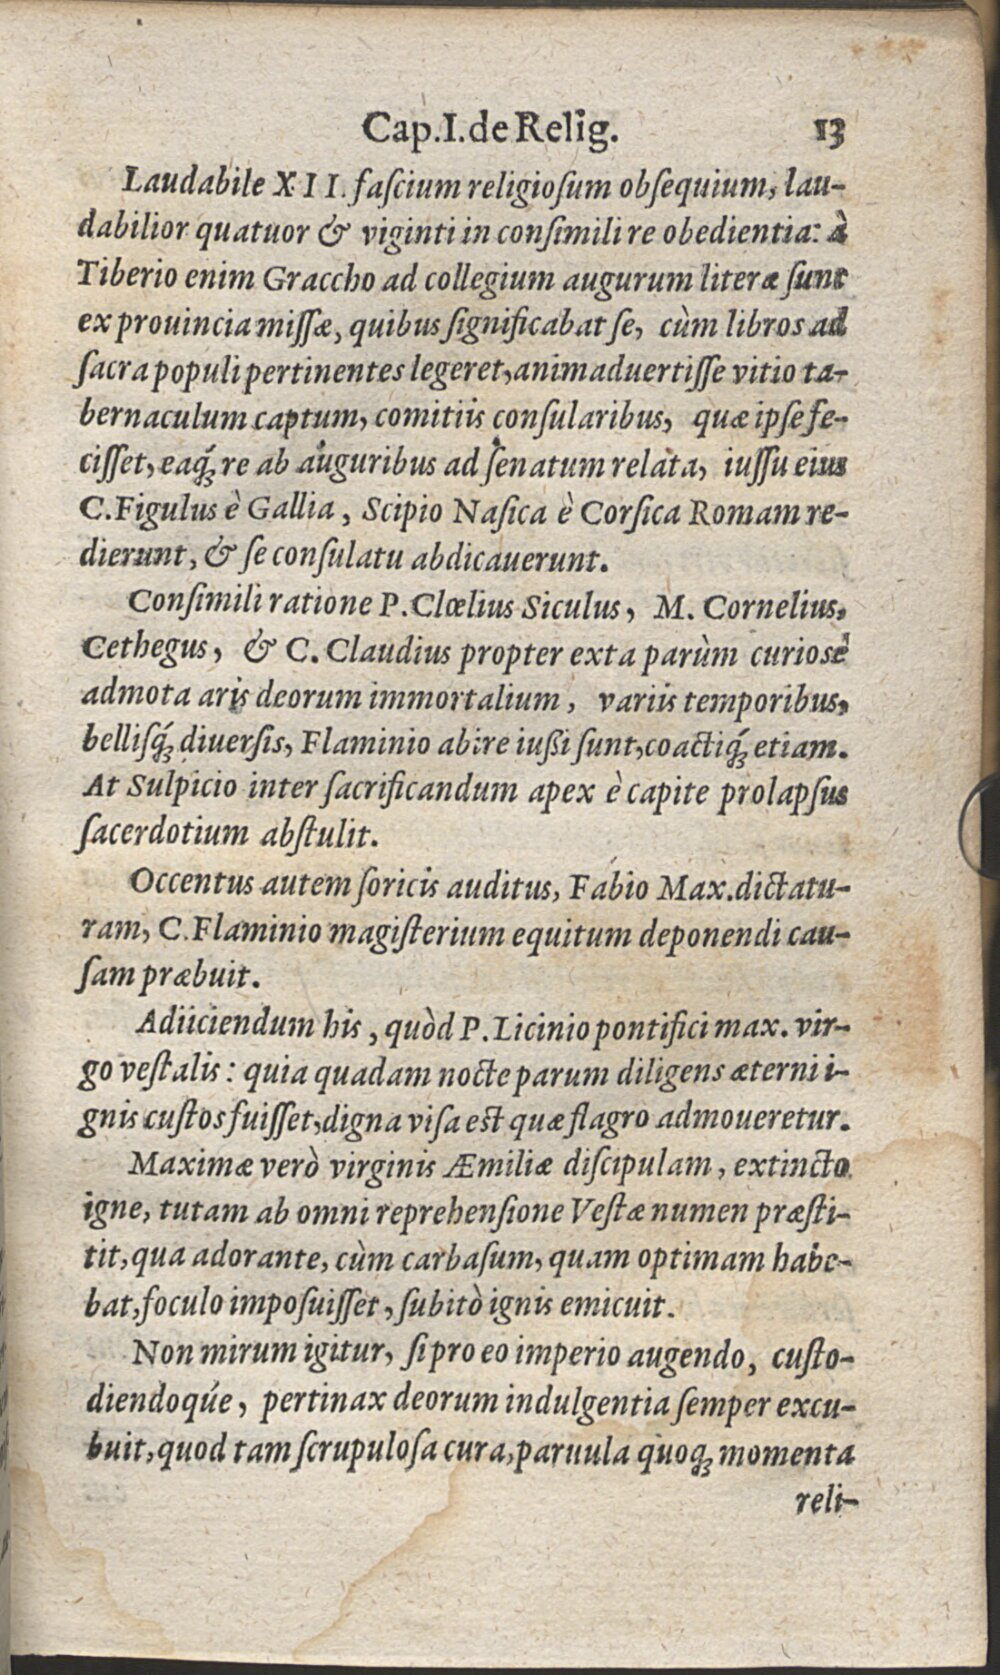 Cap. I. de Relig. 13
Laudabile XII. faſcium religioſum obſequium, lau-
dabilior quatuor & viginti in conſimili re obedientia: à
Tiberio enim Graccho ad collegium augurum literæ ſunt
ex prouincia miſſæ, quibus ſignificabat ſe, cùm libros ad
ſacra populi pertinentes legeret, animaduertiſſe vitio ta-
bernaculum captum, comitiis conſularibus, quæ ipſe fe-
ciſſet, eaq́ꝫ re ab auguribus ad ſenatum relata, iuſſu eius
C. Figulus è Gallia, Scipio Naſica è Corſica Romam re-
dierunt, & ſe conſulatu abdicauerunt.
Conſimili ratione P. Clœlius Siculus, M. Cornelius,
Cethegus, & C. Claudius propter exta parùm curiosè
admota aris deorum immortalium, variis temporibus,
belliſq́ꝫ diuerſis, Flaminio abire iußi ſunt, coactiq́ꝫ etiam.
At Sulpicio inter ſacrificandum apex è capite prolapſus
ſacerdotium abſtulit.
Occentus autem ſoricis auditus, Fabio Max. dictatu-
ram, C. Flaminio magiſterium equitum deponendi cau-
ſam præbuit.
Adiiciendum his, quòd P. Licinio pontifici max. vir-
go veſtalis: quia quadam nocte parum diligens æterni i-
gnis cuſtos fuiſſet, digna viſa est quæ flagro admoueretur.
Maximæ verò virginis Æmiliæ diſcipulam, extincto
igne, tutam ab omni reprehenſione Veſtæ numen præſti-
tit, qua adorante, cùm carbaſum, quam optimam habe-
bat, foculo impoſuiſſet, ſubitò ignis emicuit.
Non mirum igitur, ſi pro eo imperio augendo, cuſto-
diendoqúe, pertinax deorum indulgentia ſemper excu-
buit, quod tam ſcrupuloſa cura, paruula quoq́ꝫ momenta
reli-